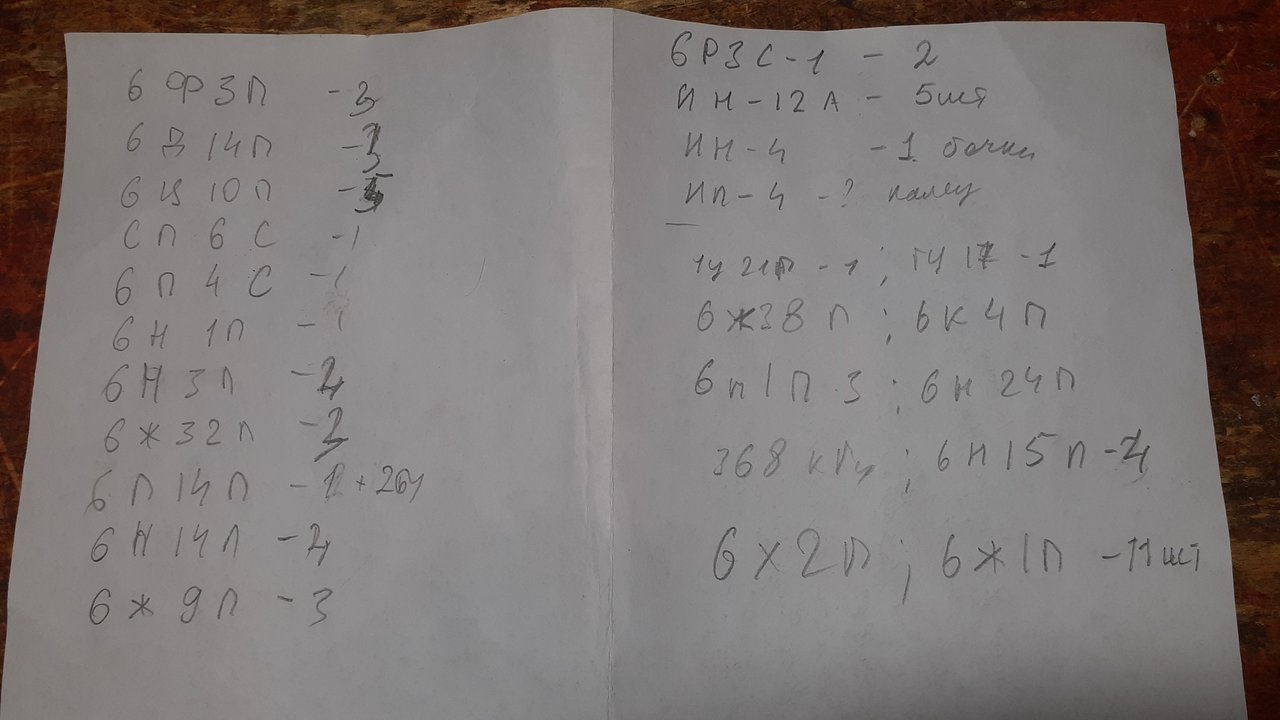 6 Ф 3 П - 3
6 Д 14 П - 3
6 Ц 10 П
СП 6 С - 1
6 П 4 С - 1
6 Н 1П - 1
6 Н 3 П - 4
6 Ж 32 П
6 П 14 П - 1 + 2бу
6 Н 14 П - 4
6 Ж 9 П - 3
6Р3С-1 - 2
ИН-12А - 5шт
ИН-4 - 1 бочки
ИП-4 - ?
1ц21П - 1 ; ГУ 17 - 1
6Ж38П ; 6К4П
6п1П 3 ; 6Н24П
368 кГц ; 6Н15П - 4
6Х2П ; 6Ж1П - 11шт